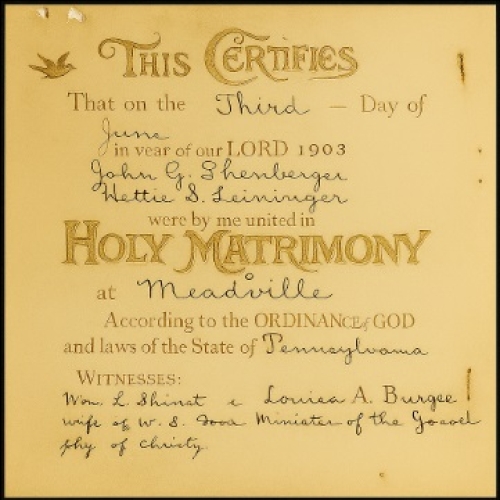 THIS CERTIFIES
That on the Third — Day of
June
in year of our LORD 1903
John G. Shenberger
Hettie S. Leininger
were by me united in
HOLY MATRIMONY
at Meadville
According to the ORDINANCE of GOD
and laws of the State of Pennsylvania
WITNESSES:
Wm. L. Shinat & Louica A. Burgee
wife of W. S. Minister of the
phy of Christy